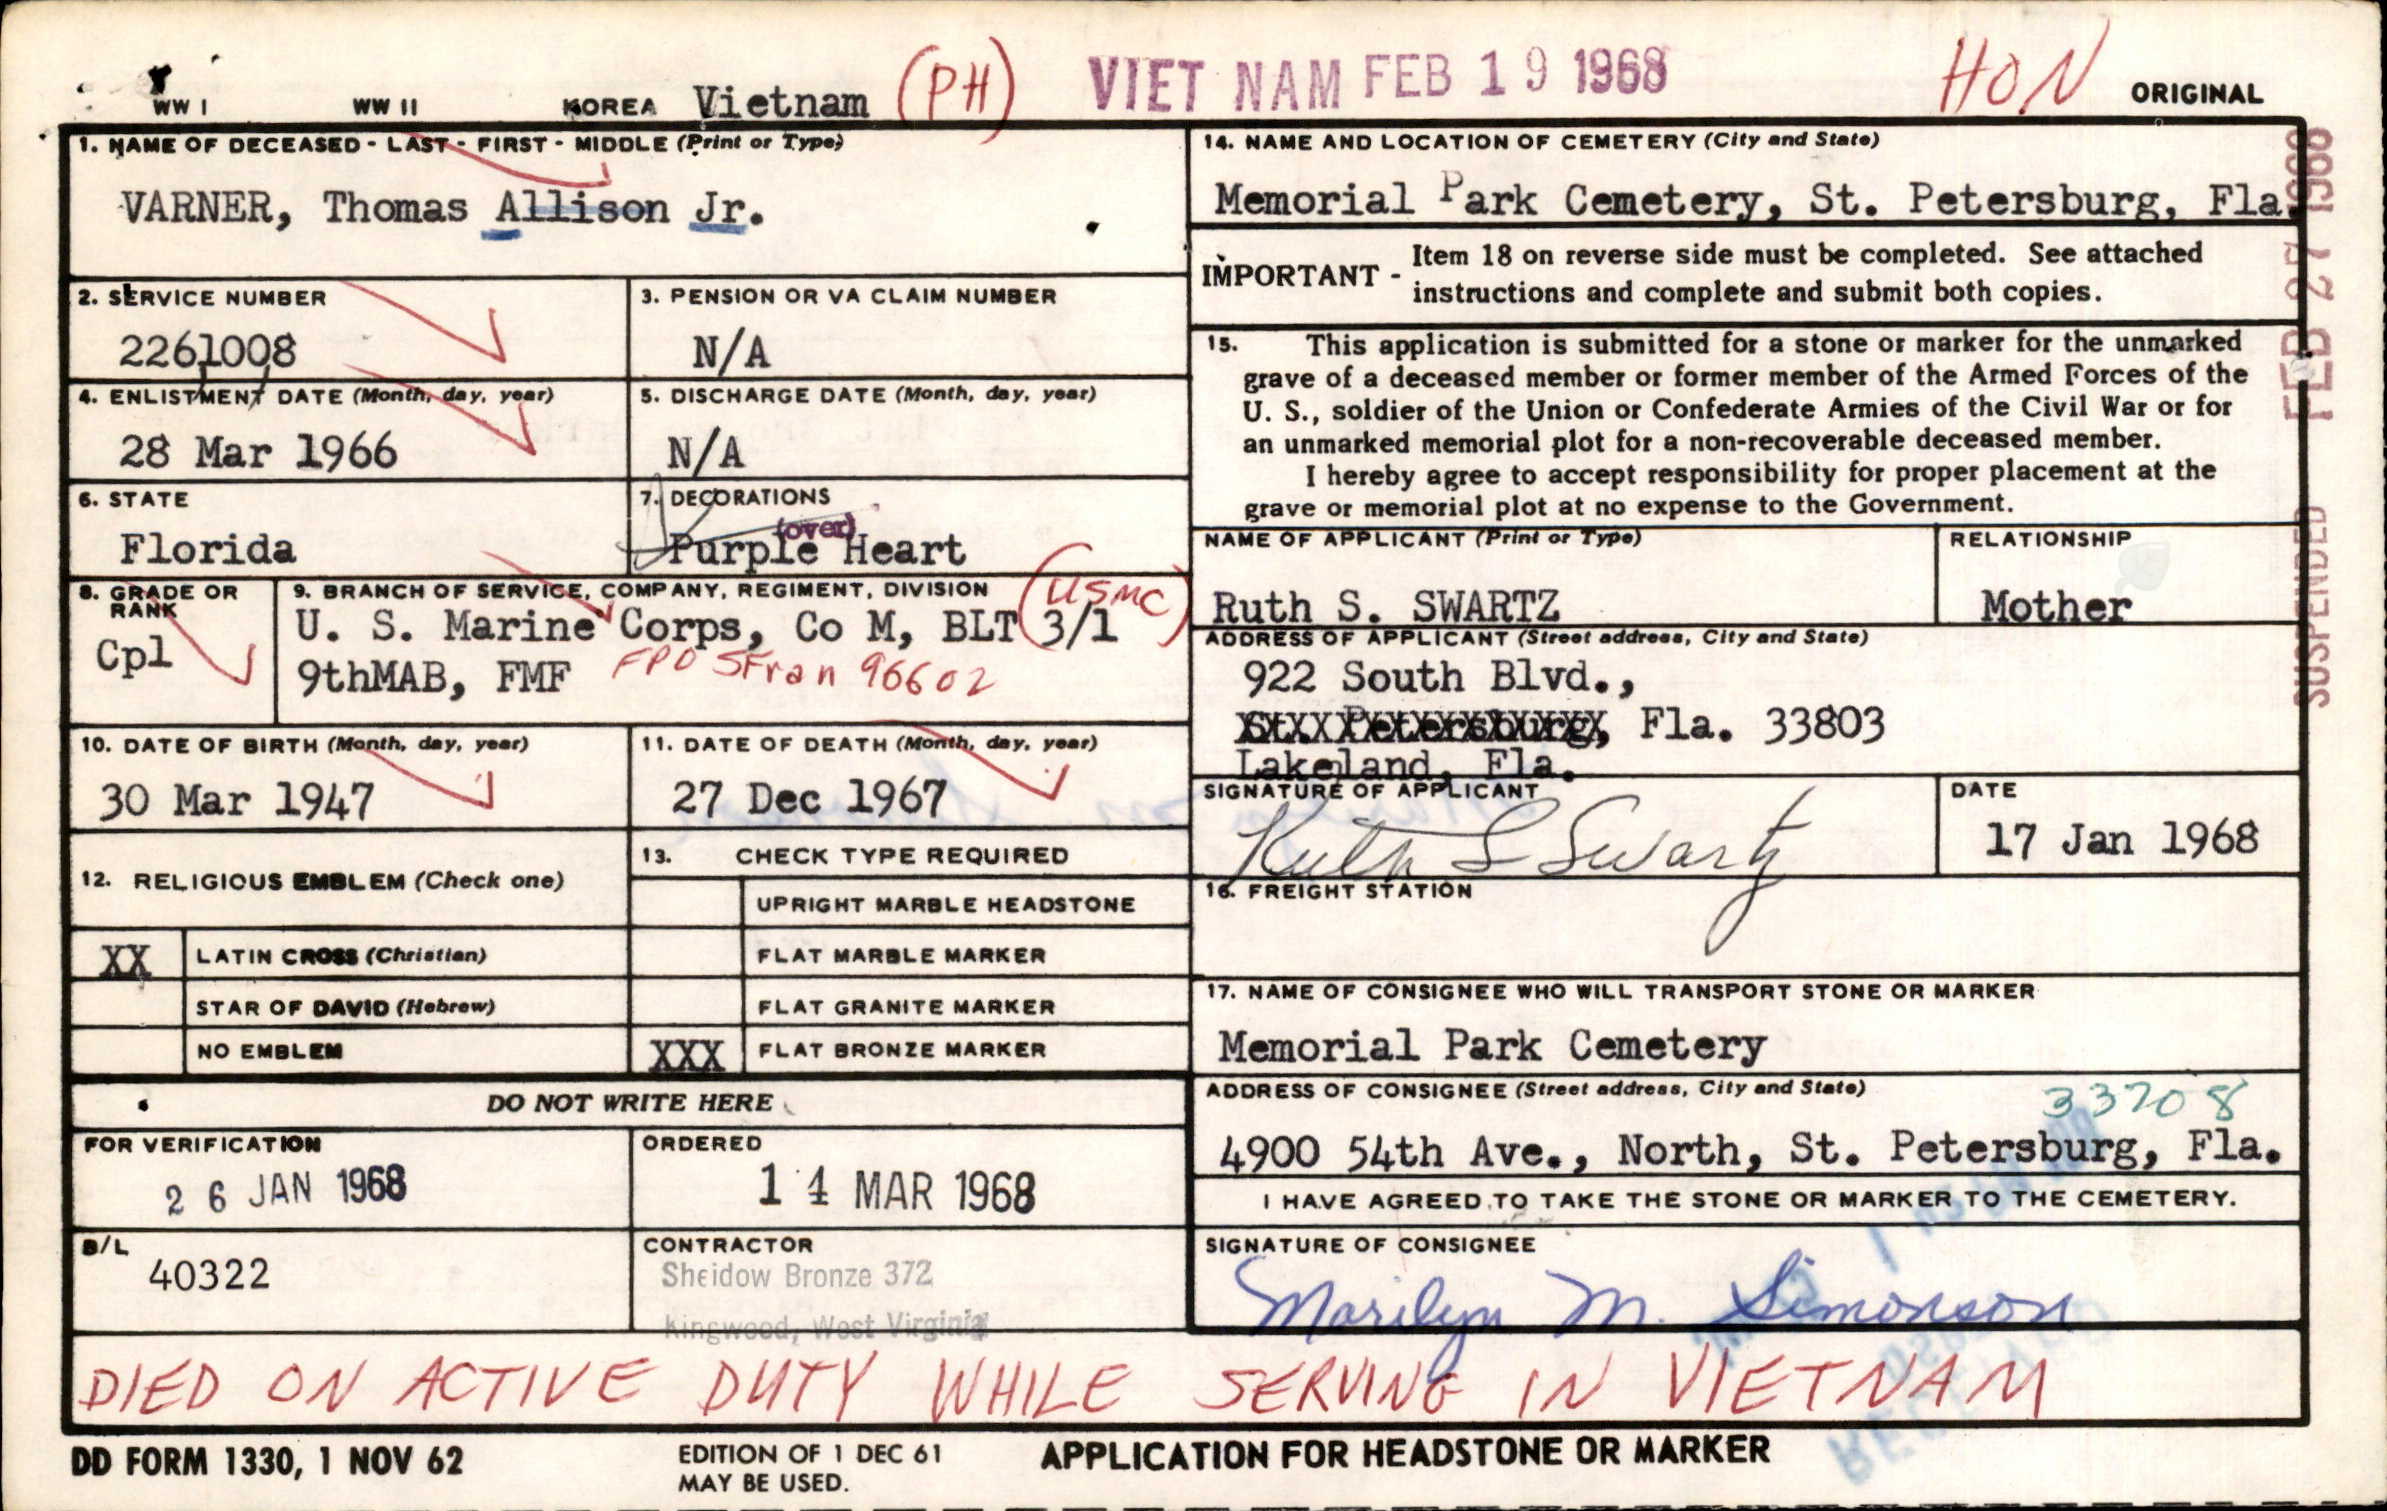 WW I WW II KOREA Vietnam (PH) VIET NAM FEB 19 1968 HON ORIGINAL
1. NAME OF DECEASED - LAST - FIRST - MIDDLE (Print or Type)
VARNER, Thomas Allison Jr.
2. SERVICE NUMBER
2261008
3. PENSION OR VA CLAIM NUMBER
N/A
4. ENLISTMENT DATE (Month, day, year)
28 Mar 1966
5. DISCHARGE DATE (Month, day, year)
N/A
6. STATE
Florida
7. DECORATIONS
(over)
Purple Heart
8. GRADE OR RANK
Cpl
9. BRANCH OF SERVICE, COMPANY, REGIMENT, DIVISION
(USMC)
U. S. Marine Corps, Co M, BLT 3/1
9thMAB, FMF FPO SFran 96602
10. DATE OF BIRTH (Month, day, year)
30 Mar 1947
11. DATE OF DEATH (Month, day, year)
27 Dec 1967
12. RELIGIOUS EMBLEM (Check one)
XX LATIN CROSS (Christian)
STAR OF DAVID (Hebrew)
NO EMBLEM
13. CHECK TYPE REQUIRED
UPRIGHT MARBLE HEADSTONE
FLAT MARBLE MARKER
FLAT GRANITE MARKER
XXX FLAT BRONZE MARKER
DO NOT WRITE HERE
FOR VERIFICATION
26 JAN 1968
ORDERED
14 MAR 1968
B/L
40322
CONTRACTOR
Sheidow Bronze 372
Kingwood, West Virginia
14. NAME AND LOCATION OF CEMETERY (City and State)
Memorial Park Cemetery, St. Petersburg, Fla.
IMPORTANT - Item 18 on reverse side must be completed. See attached
instructions and complete and submit both copies.
15. This application is submitted for a stone or marker for the unmarked
grave of a deceased member or former member of the Armed Forces of the
U. S., soldier of the Union or Confederate Armies of the Civil War or for
an unmarked memorial plot for a non-recoverable deceased member.
I hereby agree to accept responsibility for proper placement at the
grave or memorial plot at no expense to the Government.
NAME OF APPLICANT (Print or Type)
Ruth S. SWARTZ
RELATIONSHIP
Mother
ADDRESS OF APPLICANT (Street address, City and State)
922 South Blvd.,
St. Petersburg, Fla. 33803
Lakeland, Fla.
SIGNATURE OF APPLICANT
Ruth S Swartz
DATE
17 Jan 1968
16. FREIGHT STATION
17. NAME OF CONSIGNEE WHO WILL TRANSPORT STONE OR MARKER
Memorial Park Cemetery
ADDRESS OF CONSIGNEE (Street address, City and State)
33708
4900 54th Ave., North, St. Petersburg, Fla.
I HAVE AGREED TO TAKE THE STONE OR MARKER TO THE CEMETERY.
SIGNATURE OF CONSIGNEE
Marilyn M. Simonson
SUSPENDED FEB 27 1968
DIED ON ACTIVE DUTY WHILE SERVING IN VIETNAM
DD FORM 1330, 1 NOV 62
EDITION OF 1 DEC 61
MAY BE USED.
APPLICATION FOR HEADSTONE OR MARKER